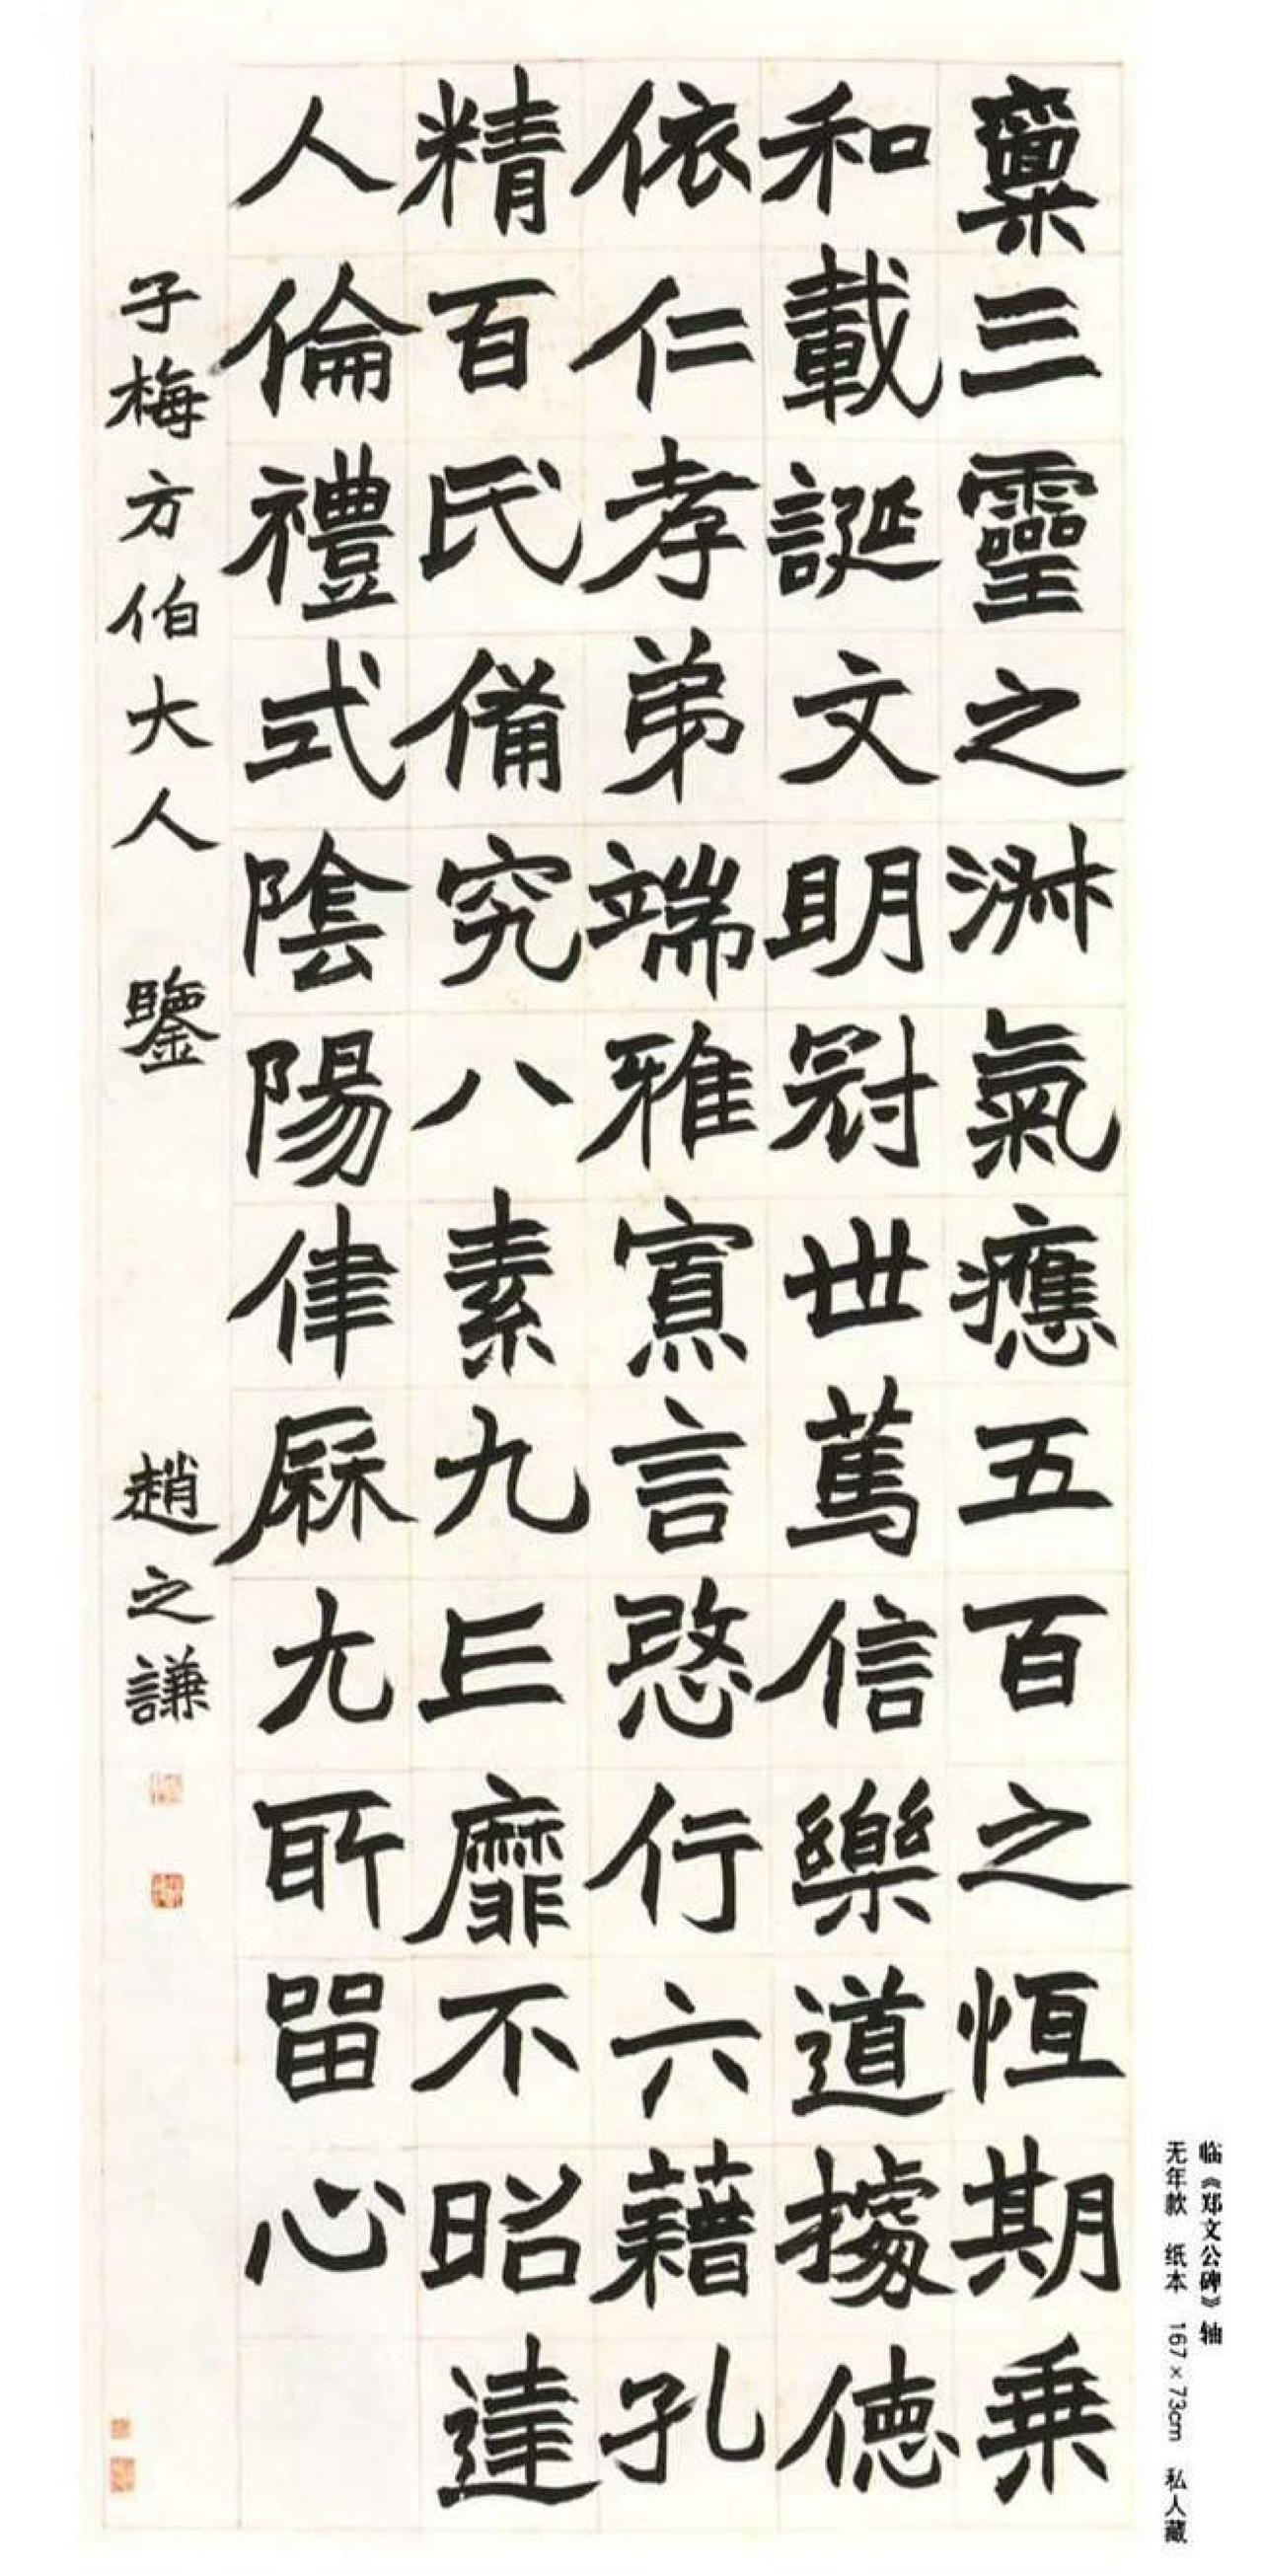 稟三靈之淑氣應五百之恆期乘
和載誕文明冠世篤信樂道據德
依仁孝弟端雅寡言愍行六藉孔
精百氏備究八素九丘靡不昭達
人倫禮式陰陽律曆尤所留心
子梅方伯大人 鑒 趙之謙
临《郑文公碑》轴
无年款 纸本 167×73cm 私人藏